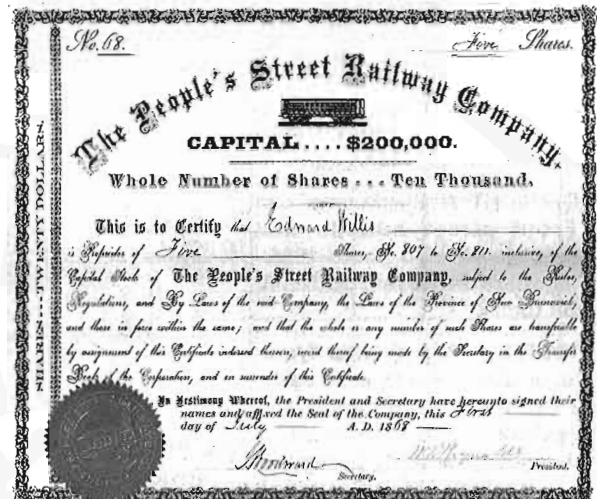 No. 68.
Five Shares.
The People's Street Railway Company.
CAPITAL....$200,000.
Whole Number of Shares... Ten Thousand.
This is to Certify that Edward Willis
is Proprietor of Five Shares, No. 807 to No. 811. inclusive, of the
Capital Stock of The People's Street Railway Company, subject to the Rules,
Regulations, and By Laws of the said Company, the Laws of the Province of New Brunswick,
and those in force within the same; and that the whole or any number of such Shares are transferable
by assignment of this Certificate indorsed thereon, record thereof being made by the Secretary in the Transfer
Book of the Corporation, and on surrender of this Certificate.
In Testimony Whereof, the President and Secretary have hereunto signed their
names and affixed the Seal of the Company, this First
day of July A. D. 1868
Secretary.
President.
SHARES...TWENTY DOLLARS.